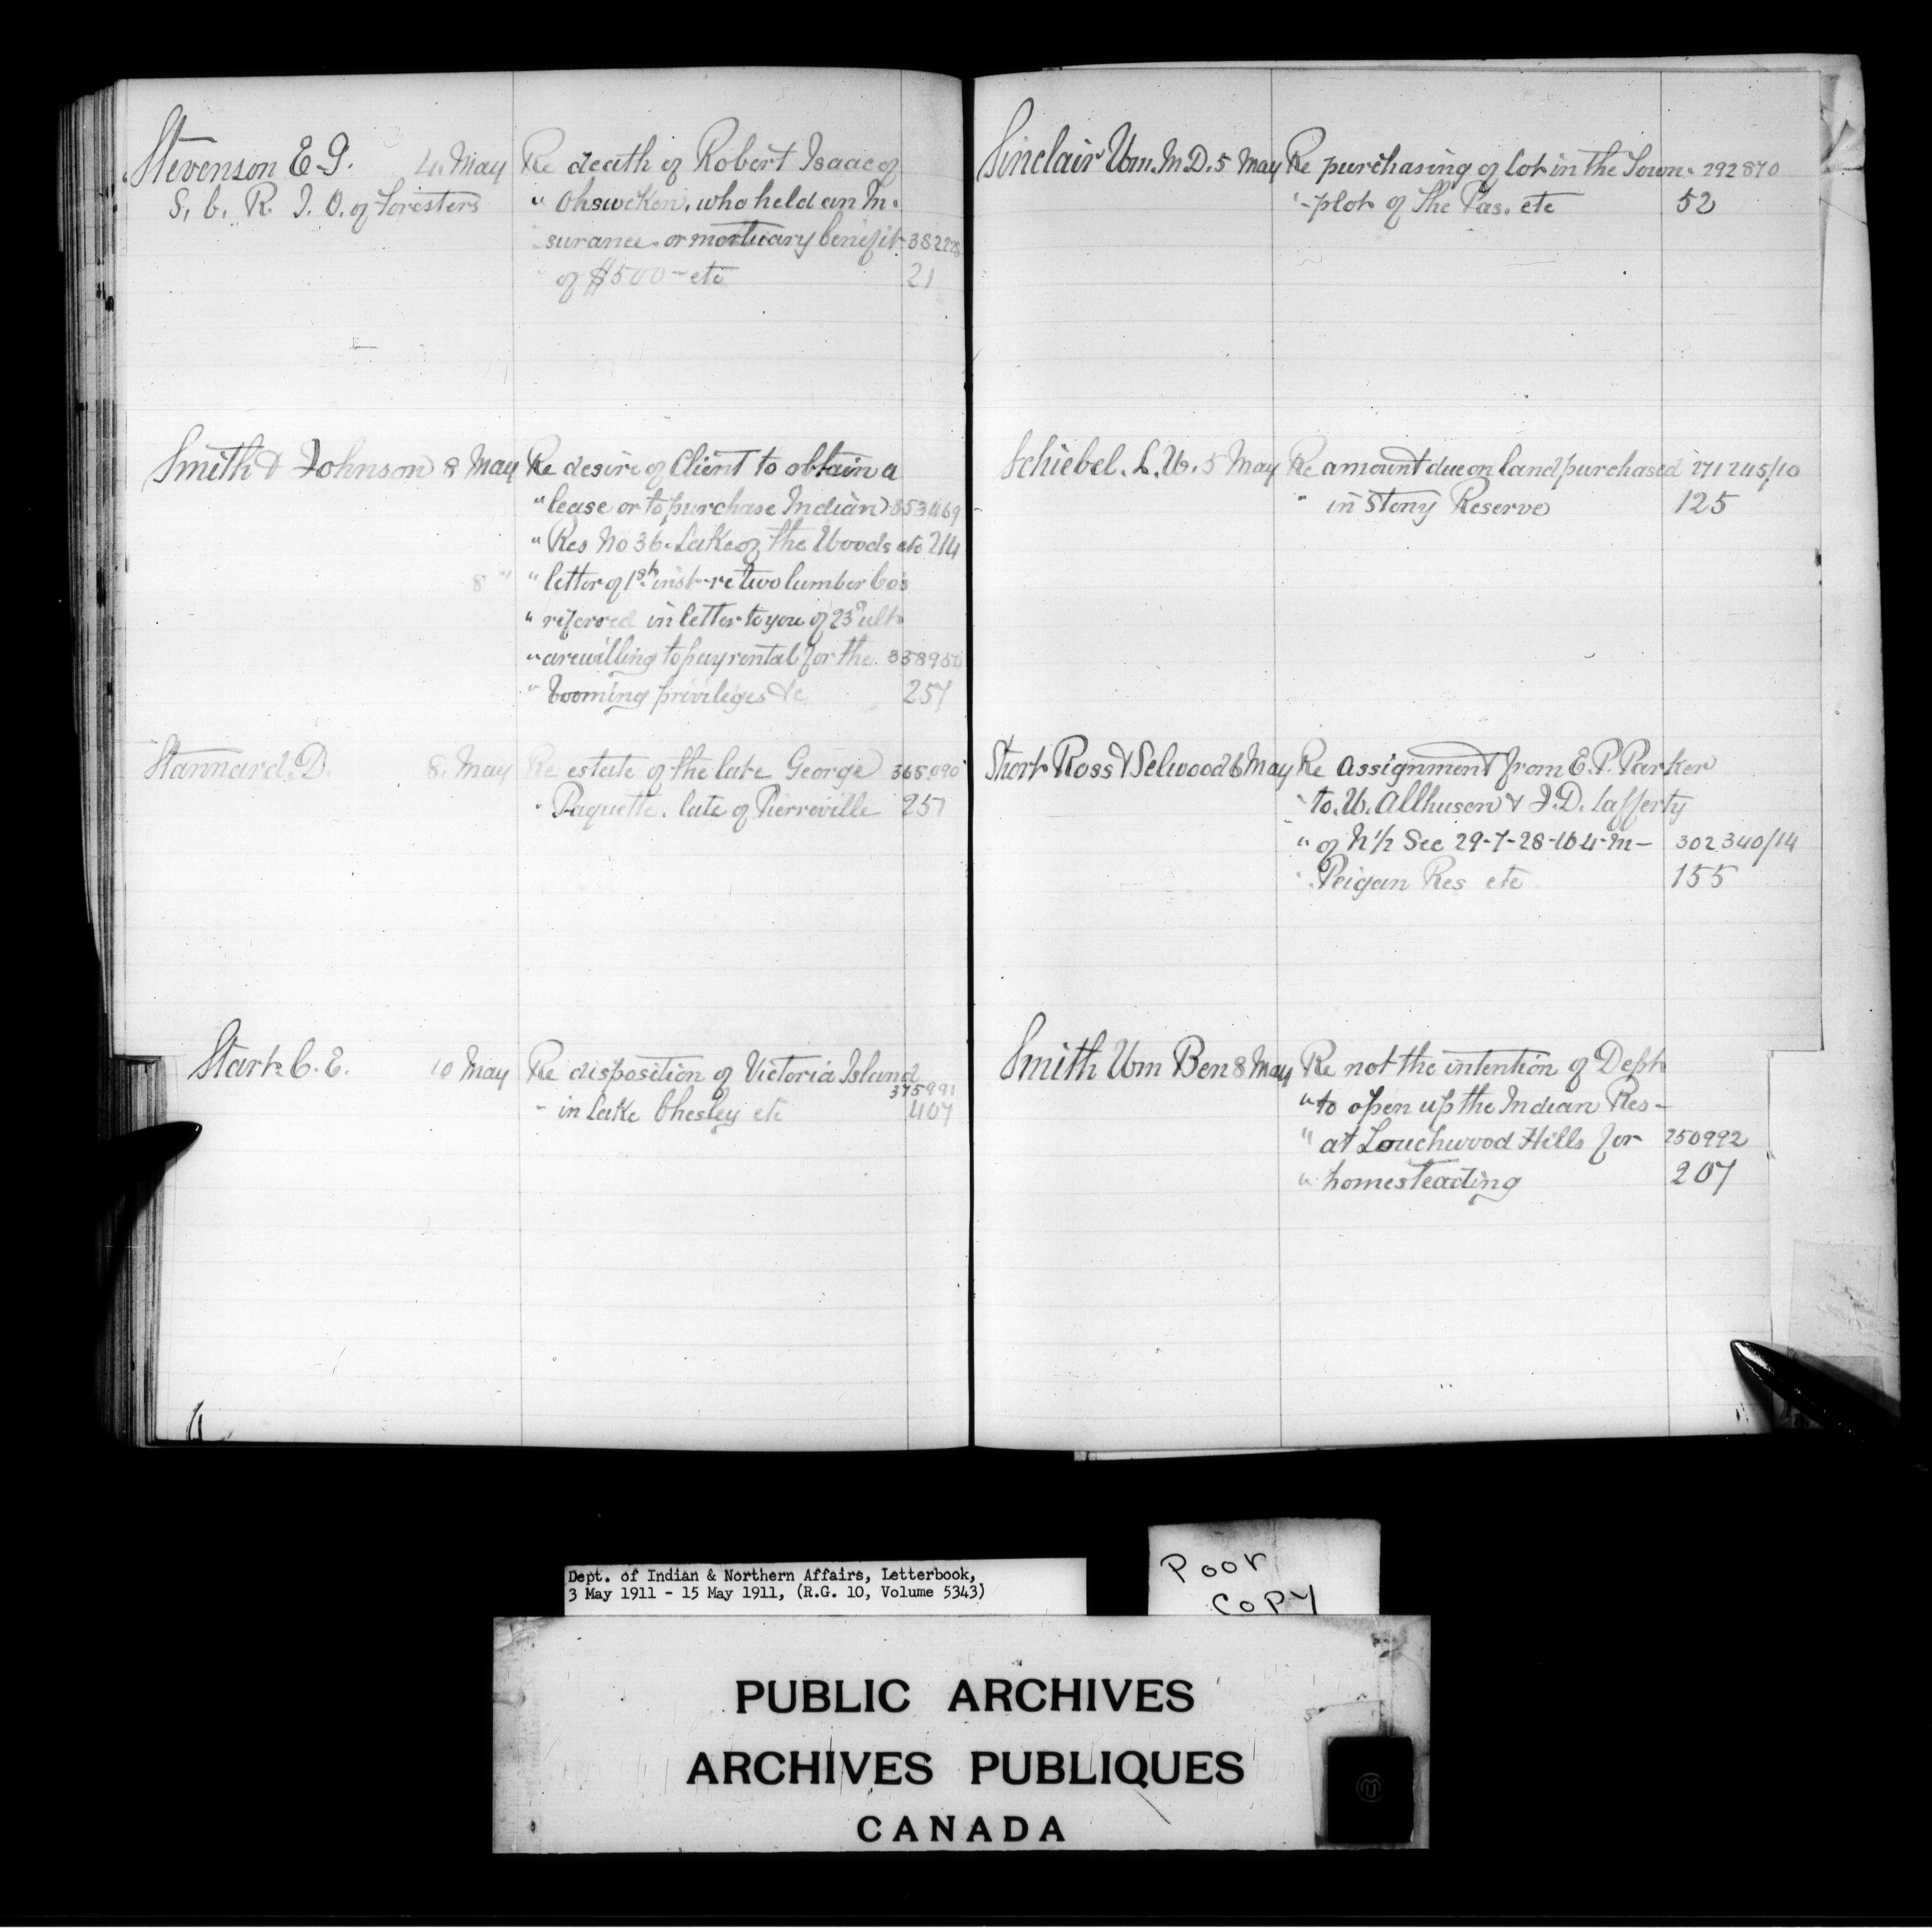 Stevenson E. G. 4. May Re death of Robert Isaac of
S. C. R. I. O. of Foresters " Ohsweken, who held an In-
surance or mortuary benefit 382228
" of $500 - etc 21
Smith & Johnson 8 May Re desire of Client to obtain a
" lease or to purchase Indian 353469
" Res No 36. Lake of the Woods etc 214
8 " " letter of 1st inst - re two lumber Co's
" referred in letter to you of 23d ulto
" are willing to pay rental for the 358950
" booming privileges &c 257
Stannard. D. 8. May Re estate of the late George 365,090
" Paquette. late of Pierreville 251
Stark C. E. 10 May Re disposition of Victoria Island
375991
- in Lake Chesley etc 407
Sinclair Wm. M.D. 5 May Re purchasing of lot in the Town- 292870
"-plot of The Pas. etc 52
Schiebel. L. W. 5 May Re amount due on land purchased 271245/10
" in Stony Reserve 125
Short Ross & Selwood 6 May Re Assignment from E. P. Parker
" to. W. Allhusen & J. D. Lafferty
" of N 1/2 Sec 29-7-28-W 4-M- 302340/14
" Peigan Res etc 155
Smith Wm Ben 8 May Re not the intention of Dept
" to open up the Indian Res-
" at Touchwood Hills for 250992
" homesteading 207
Dept. of Indian & Northern Affairs, Letterbook,
3 May 1911 - 15 May 1911, (R.G. 10, Volume 5343)
Poor
Copy
PUBLIC ARCHIVES
ARCHIVES PUBLIQUES
CANADA